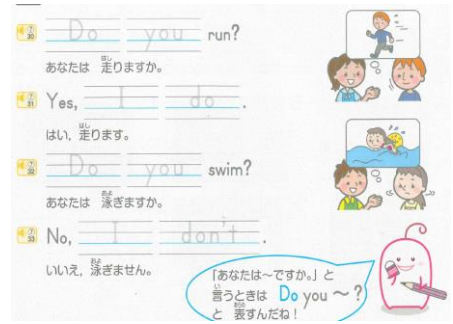 Do you run?
あなたは 走りますか。
Yes, I do.
はい、走ります。
Do you swim?
あなたは 泳ぎますか。
No, I don't.
いいえ、泳ぎません。
「あなたは~ですか。」と
言うときは Do you ~ ?
と 表すんだね!